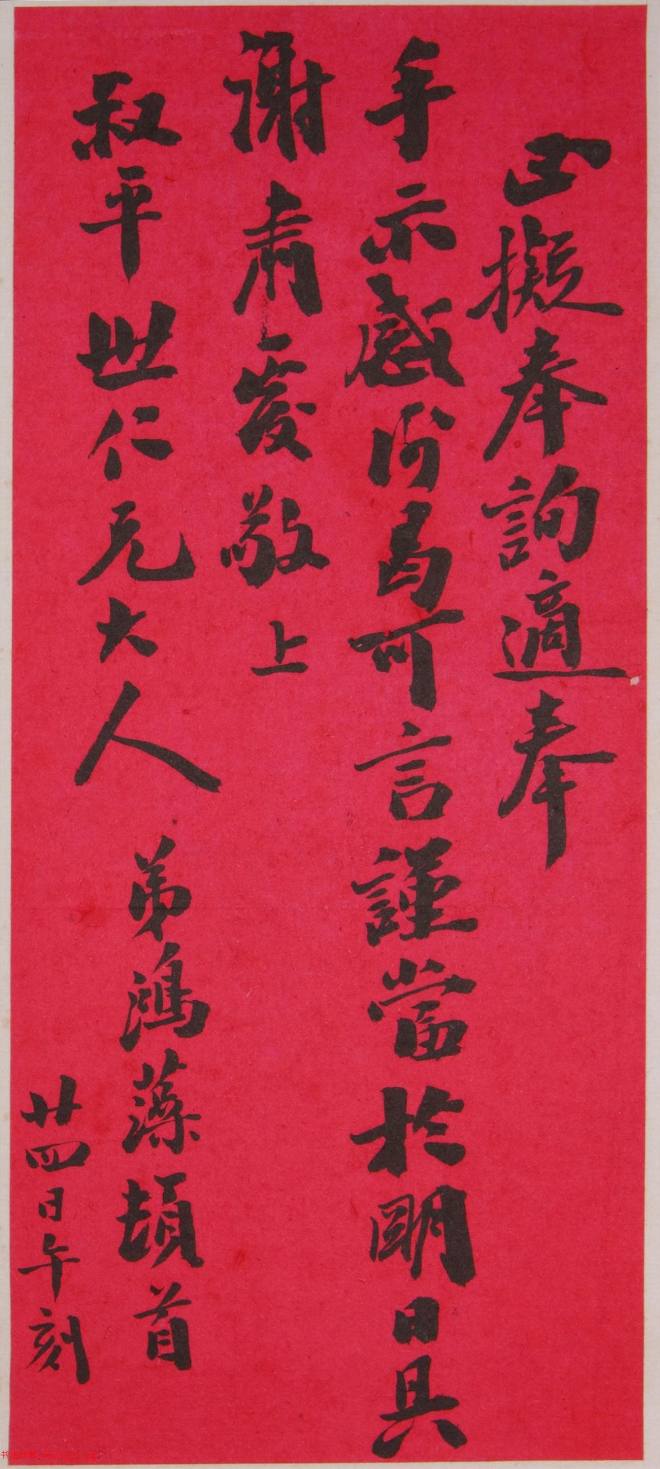 正擬奉詢適奉
手示感曷可言謹當於明日具
謝肅复敬上
叔平世仁兄大人
弟鴻藻頓首
廿四日午刻